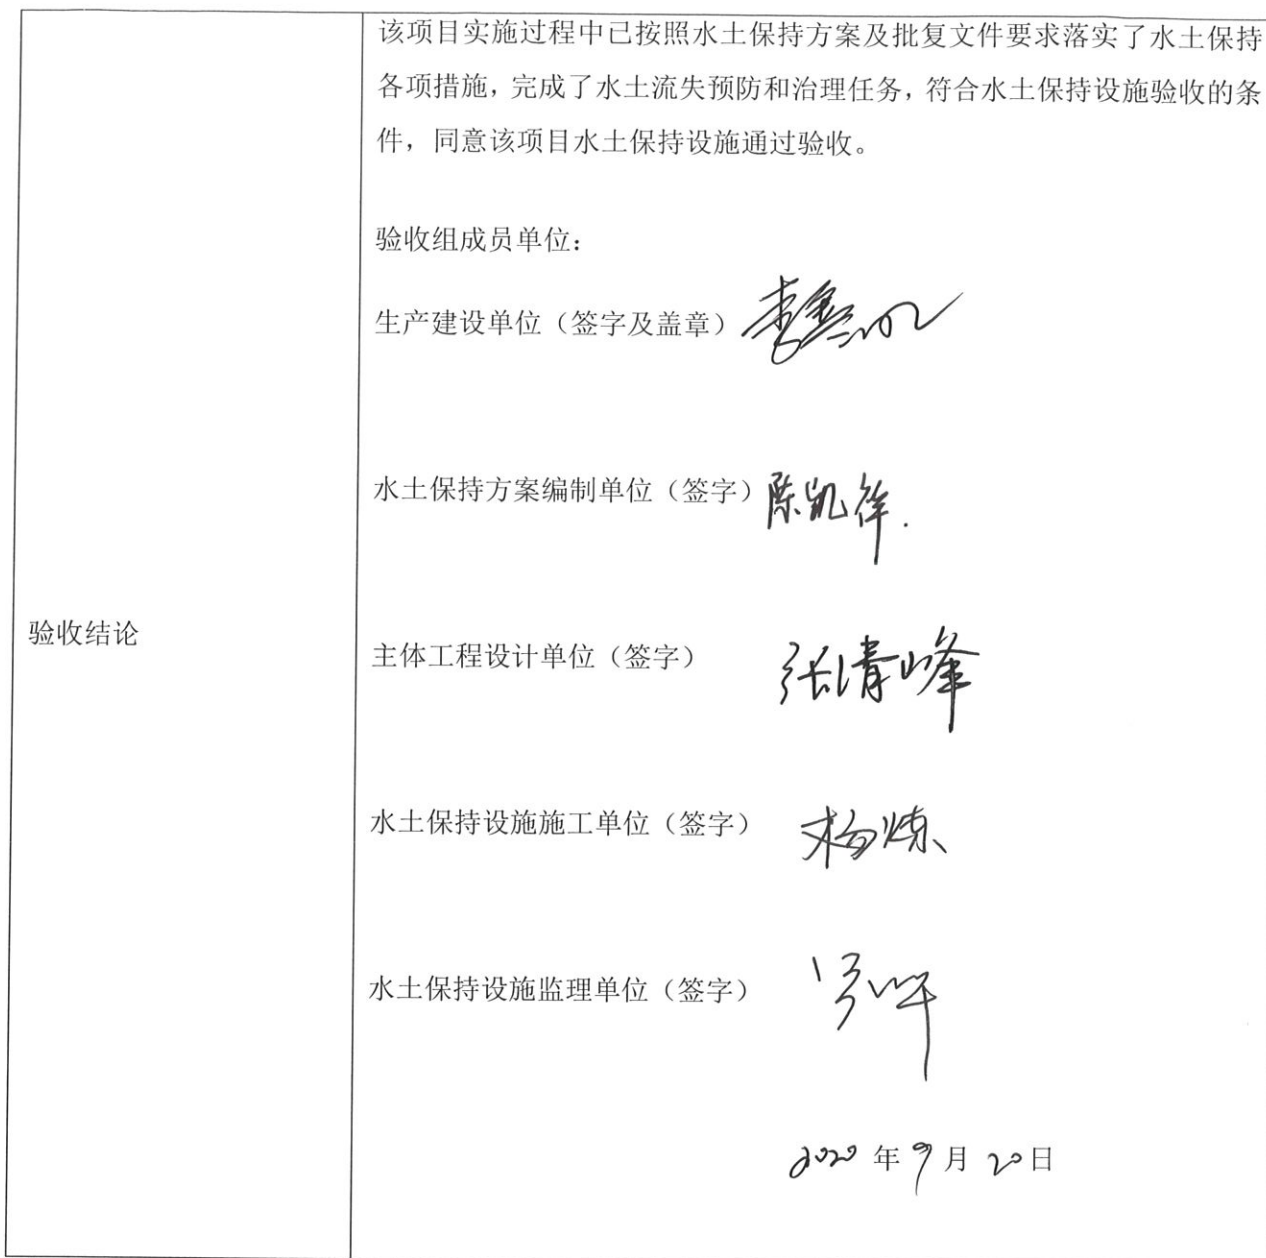 该项目实施过程中已按照水土保持方案及批复文件要求落实了水土保持
各项措施，完成了水土流失预防和治理任务，符合水土保持设施验收的条
件，同意该项目水土保持设施通过验收。
验收组成员单位：
生产建设单位（签字及盖章）
水土保持方案编制单位（签字）陈凯
验收结论
主体工程设计单位（签字） 张清峰
水土保持设施施工单位（签字） 杨炼
水土保持设施监理单位（签字）
2020 年 9 月 20 日